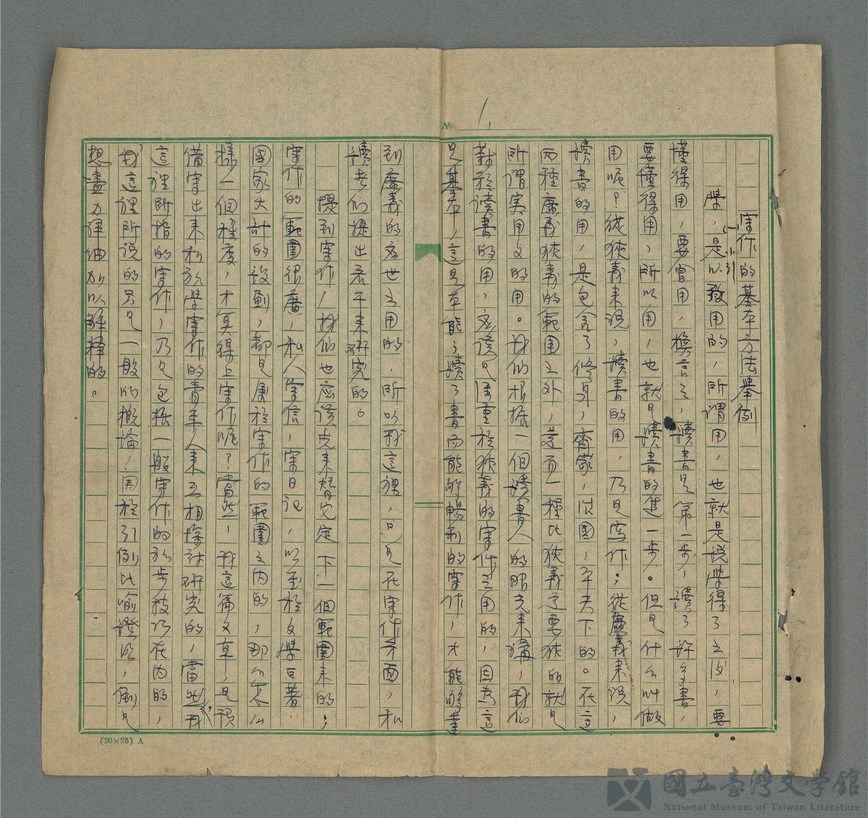 1.
No.
寫作的基本方法舉例
(一)小引
學,是以致用的,所謂用,也就是說學得了之後,要
懂得用,要會用,換言之,讀書是第一步,讀了許多書,
要懂得用,所以用,也就是讀書的進一步。但是什么叫做
用呢?從狹義來說,讀書的用,乃是寫作;從廣義來說,
讀書的用,是包含了修身,齊家,治國,平天下的。在這
兩種廣義狹義的範圍之外,還有一種比狹義還要狹的就是
所謂實用文的用。我們根據一個讀書人的眼光來講,我們
對於讀書的用,應該是側重於狹義的寫作之用的,因為這
是基本,這是本能,讀了書而能夠暢利的寫作,才能夠達
到廣義的應世之用的,所以我這裡,只是在寫作方面,和
讀者們提出若干來研究的。
提到寫作,我們也應該先來暫定下一個範圍來的,
寫作的範圍很廣,私人寫信,寫日記,以至於文學巨著,
國家大計的設劃,都是屬於寫作的範圍之內的,那么怎么
樣一個程度,才算得上寫作呢?當然,我這篇文章,是預
備寫出來和初學寫作的青年人來互相探討研究的,當然我
這裡所指的寫作,乃是包括一般寫作的初步技巧在內的,
我這裡所說的只是一般的概論,因於引例比喻證明,倒是
想盡力詳細加以解釋的。
(20×25) A
國立臺灣文學館
National Museum of Taiwan Literature